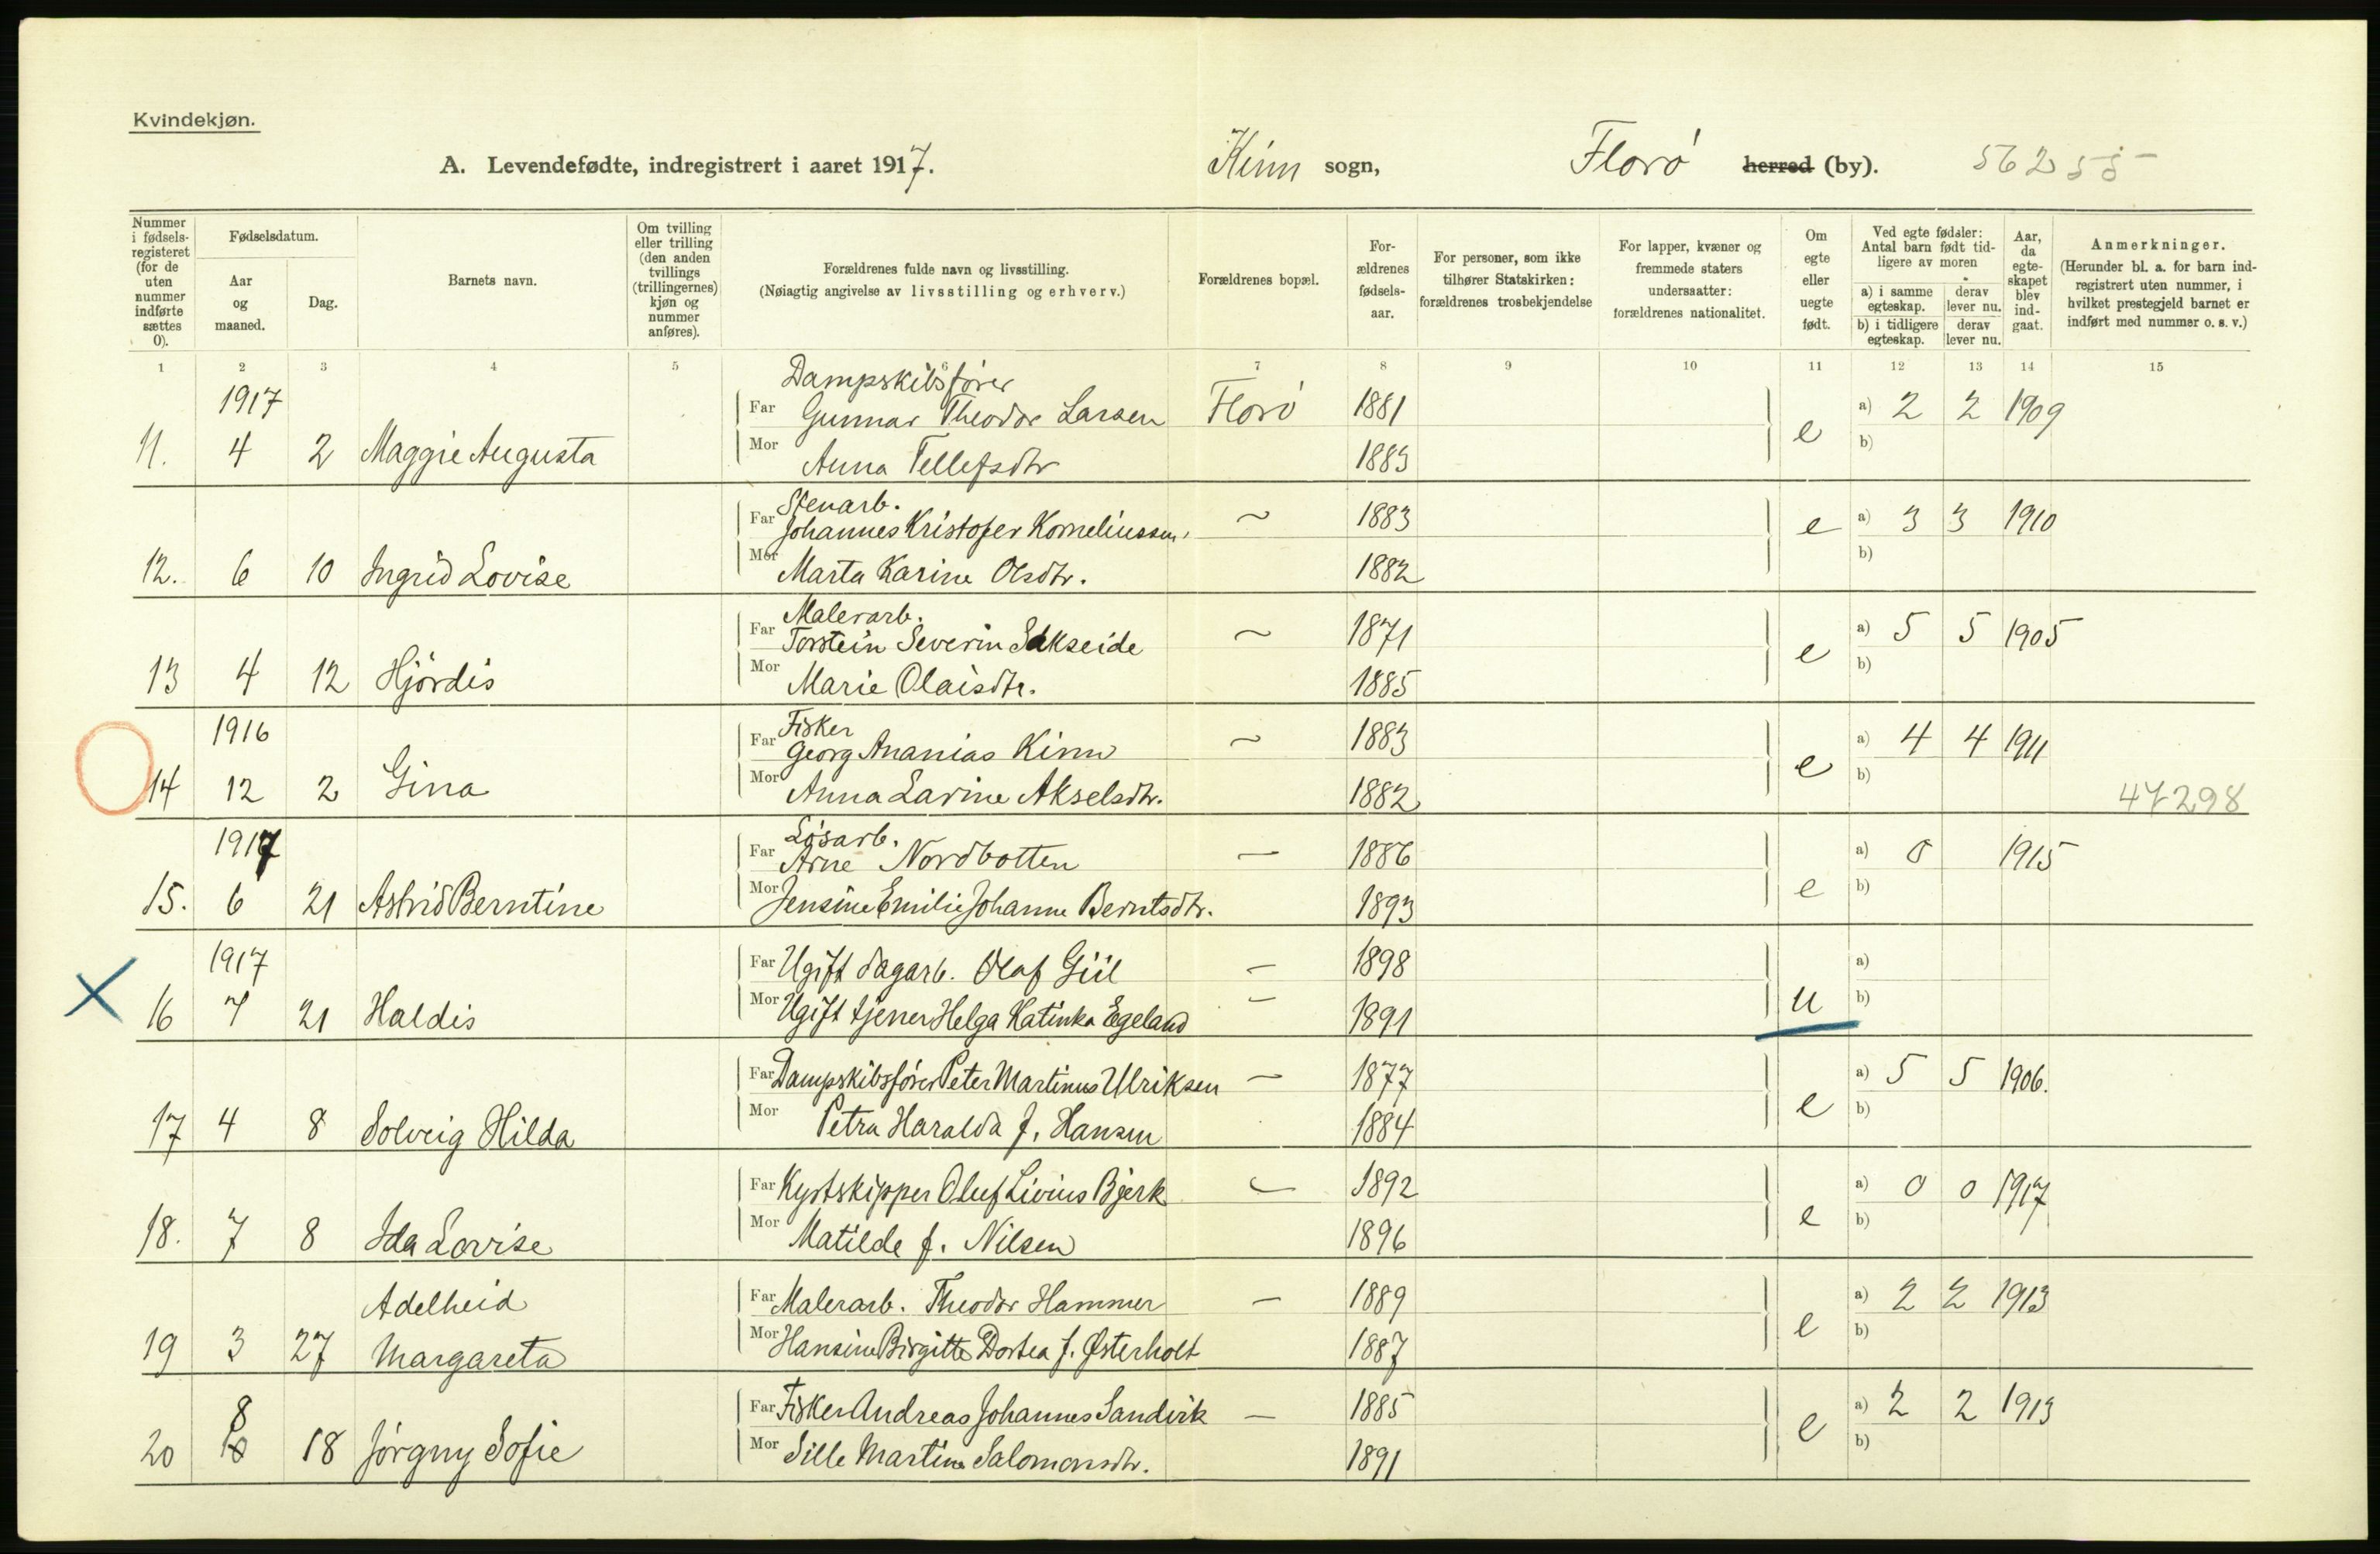 Kvindekjøn.
A. Levendefødte, indregistrert i aaret 1917. Kinn sogn, Florø herred (by). 56255
Nummer i fødselsregisteret (for de uten nummer indførte sættes 0).
Fødselsdatum.
Aar og maaned.
Dag.
Barnets navn.
Om tvilling eller trilling (den anden tvillings (trillingernes) kjøn og nummer anføres).
Forældrenes fulde navn og livsstilling.
(Nøiagtig angivelse av livsstilling og erhverv.)
Forældrenes bopæl.
Forældrenes fødselsaar.
For personer, som ikke tilhører Statskirken: forældrenes trosbekjendelse
For lapper, kvæner og fremmede staters undersaatter: forældrenes nationalitet.
Om egte eller uegte født.
Ved egte fødsler: Antal barn født tidligere av moren
a) i samme egteskap. derav lever nu.
b) i tidligere egteskap. derav lever nu.
Aar, da egteskapet blev indgaat.
Anmerkninger.
(Herunder bl. a. for barn indregistrert uten nummer, i hvilket prestegjeld barnet er indført med nummer o. s. v.)
1 2 3 4 5 6 7 8 9 10 11 12 13 14 15
Dampskibsfører
1917 Far Gunnar Theodor Larsen Florø 1881 a) 2 2 1909
11. 4 2 Maggie Augusta Mor Anna Tellefsdtr 1883 e b)
Stenarb.
Far Johannes Kristofer Korneliussen, ~ 1883 e a) 3 3 1910
12. 6 10 Ingrid Lovise Mor Marta Karine Olsdtr. 1882 b)
Malerarb.
Far Torstein Severin Sakseide ~ 1871 a) 5 5 1905
13 4 12 Hjørdis Mor Marie Olaisdtr. 1885 e b)
Fisker
1916 Far Georg Ananias Kinn ~ 1883 a) 4 4 1911
14 12 2 Gina Mor Anna Larine Akselsdtr. 1882 e b) 47298
Løsarb.
1917 Far Arne Nordbotten — 1886 a) 0 1915
15. 6 21 Astrid Berntine Mor Jensine Emilie Johanne Berntsdtr. 1893 e b)
1917 Far Ugift dagarb. Olaf Giil — 1898 a)
16 7 21 Haldis Mor Ugift tjener Helga Katinka Egeland — 1891 u b)
Far Dampskibsfører Peter Martinus Ulriksen — 1877 a) 5 5 1906.
17 4 8 Solveig Hilda Mor Petra Haralda f. Hansen 1884 e b)
Far Kystskipper Oluf Livius Bjerk — 1892 a) 0 0 1917
18. 7 8 Ida Lovise Mor Matilde f. Nilsen 1896 e b)
Adelheid Far Malerarb. Theodor Hammer — 1889 a) 2 2 1913
19 3 27 Margareta Mor Hansine Birgitte Dortea f. Østerholt 1887 e b)
8 Far Fisker Andreas Johannes Sandvik — 1885 a) 2 2 1913
20 18 Jørgny Sofie Mor Sille Martine Salomonsdtr. 1891 e b)